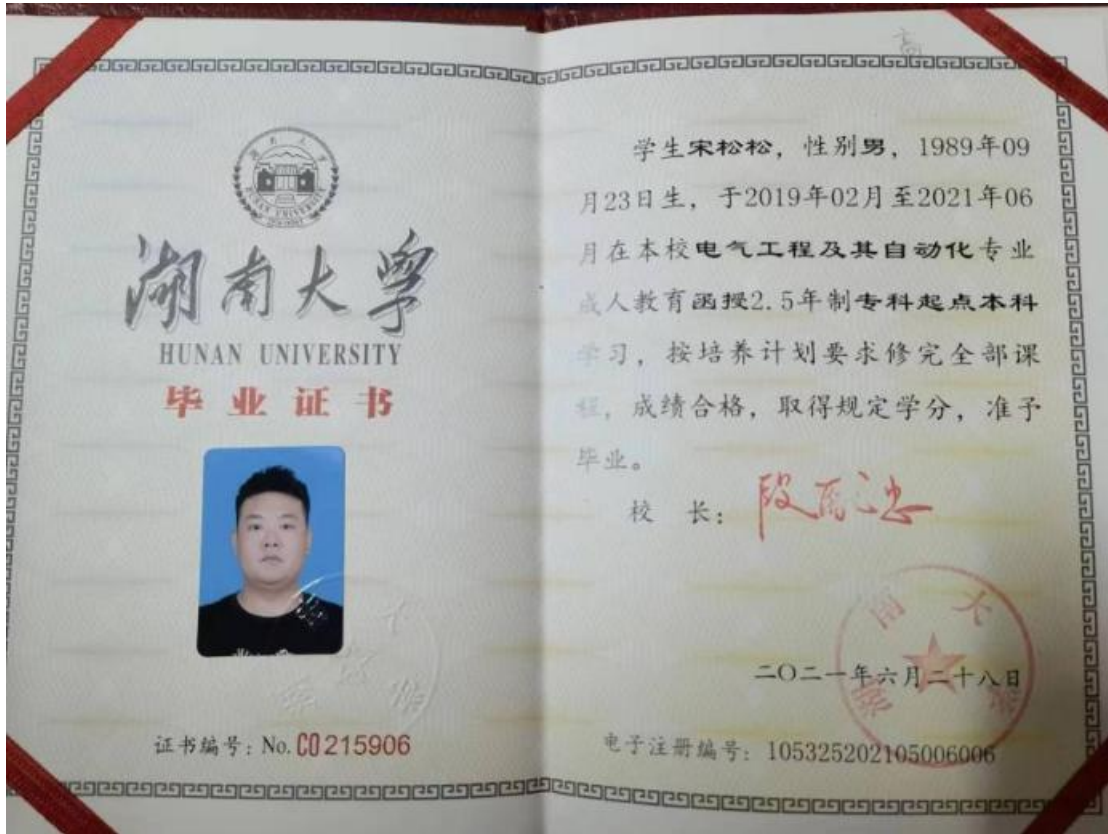 湖南大学
HUNAN UNIVERSITY
毕业证书
证书编号：No.C0215906
高
学生宋松松，性别男，1989年09
月23日生，于2019年02月至2021年06
月在本校电气工程及其自动化专业
成人教育函授2.5年制专科起点本科
学习，按培养计划要求修完全部课
程，成绩合格，取得规定学分，准予
毕业。
校 长：
湖南大学
二〇二一年六月二十八日
电子注册编号：105325202105006006